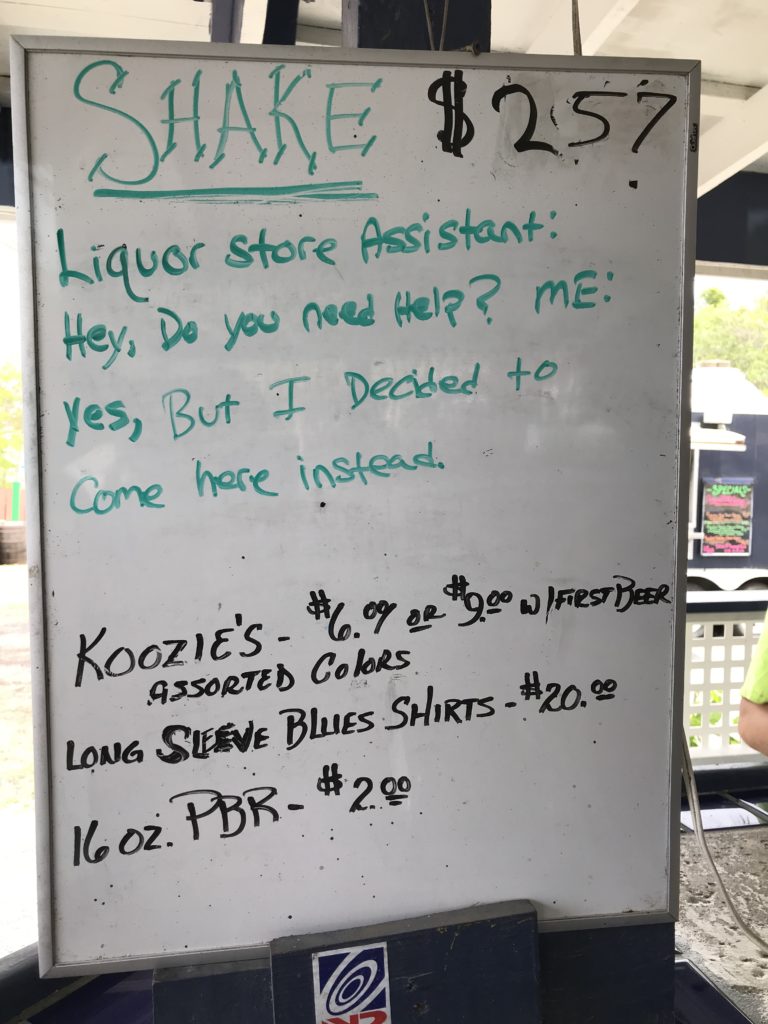 SHAKE $257
Liquor store Assistant:
Hey, Do you need Help? ME:
yes, But I Decided to
Come here instead.
KOOZIE'S - $6.09 OR $9.00 W/FIRST BEER
ASSORTED COLORS
LONG SLEEVE BLUES SHIRTS - $20.00
16 OZ. PBR - $2.00
SPECIALS